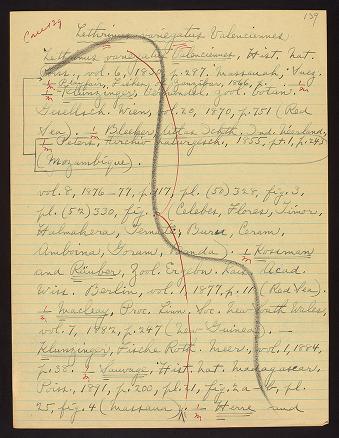 139
Lethrinus variegatus Valenciennes
Lethrinus variegatus Valenciennes, Hist. Nat.
Poiss., vol. 6, p. 287. Massauah, Suez.
Playfair, Fishes Zanzibar, 1866, p.
Klunzinger, Verhandl. Zool. botan.
Gesellsch. Wien, vol. 20, 1870, p. 751 (Red
Sea). — Bleeker, Atlas Ichth. Ind. Néerland,
Peters, Archiv Naturgesch., 1855, pt. 1, p. 243
(Mozambique).
vol. 8, 1876-77, p. 117, pl. (50) 328, fig. 3,
pl. (52) 330, fig. (Celebes, Flores, Timor,
Halmahera, Ternate, Buru, Ceram,
Amboina, Goram, Banda). — Kossman
and Räuber, Zool. Ergebn. Kais. Acad.
Wiss. Berlin, vol. 1, 1877, p. (Red Sea).
Macleay, Proc. Linn. Soc. New South Wales,
vol. 7, 1882, p. 247 (New Guinea). —
Klunzinger, Fische Roth. Meer., vol. 1, 1884,
p. 38. — Sauvage, Hist. nat. Madagascar,
Poiss., 1891, p. 200, pl. 21, fig. 2a pl.
25, fig. 4 (Massaua). — Herre and